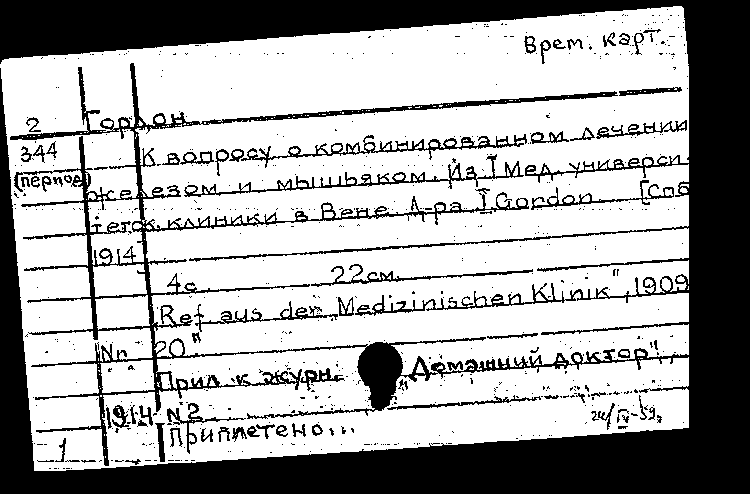 Врем. карт.
2 Гордон
344 К вопросу о комбинированном лечении
(период) железом и мышьяком. Из I Мед. универси-
тетск. клиники в Вене Д-ра I. Gordon [Спб
1914]
4с. 22см.
"Ref aus der "Medizinischen Klinik", 1909
Nn 20."
Прил. к журн. "Домашний доктор",
1914 N2
Приплетено...
1 24/IV-59г